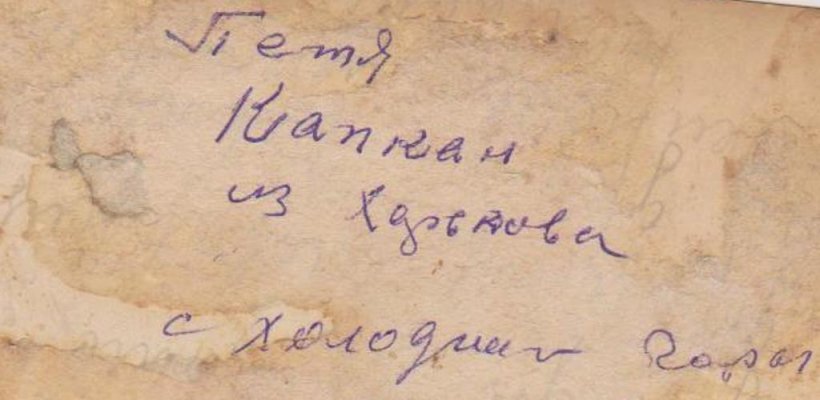 Петя
Капкан
из Харькова
с холодной горы